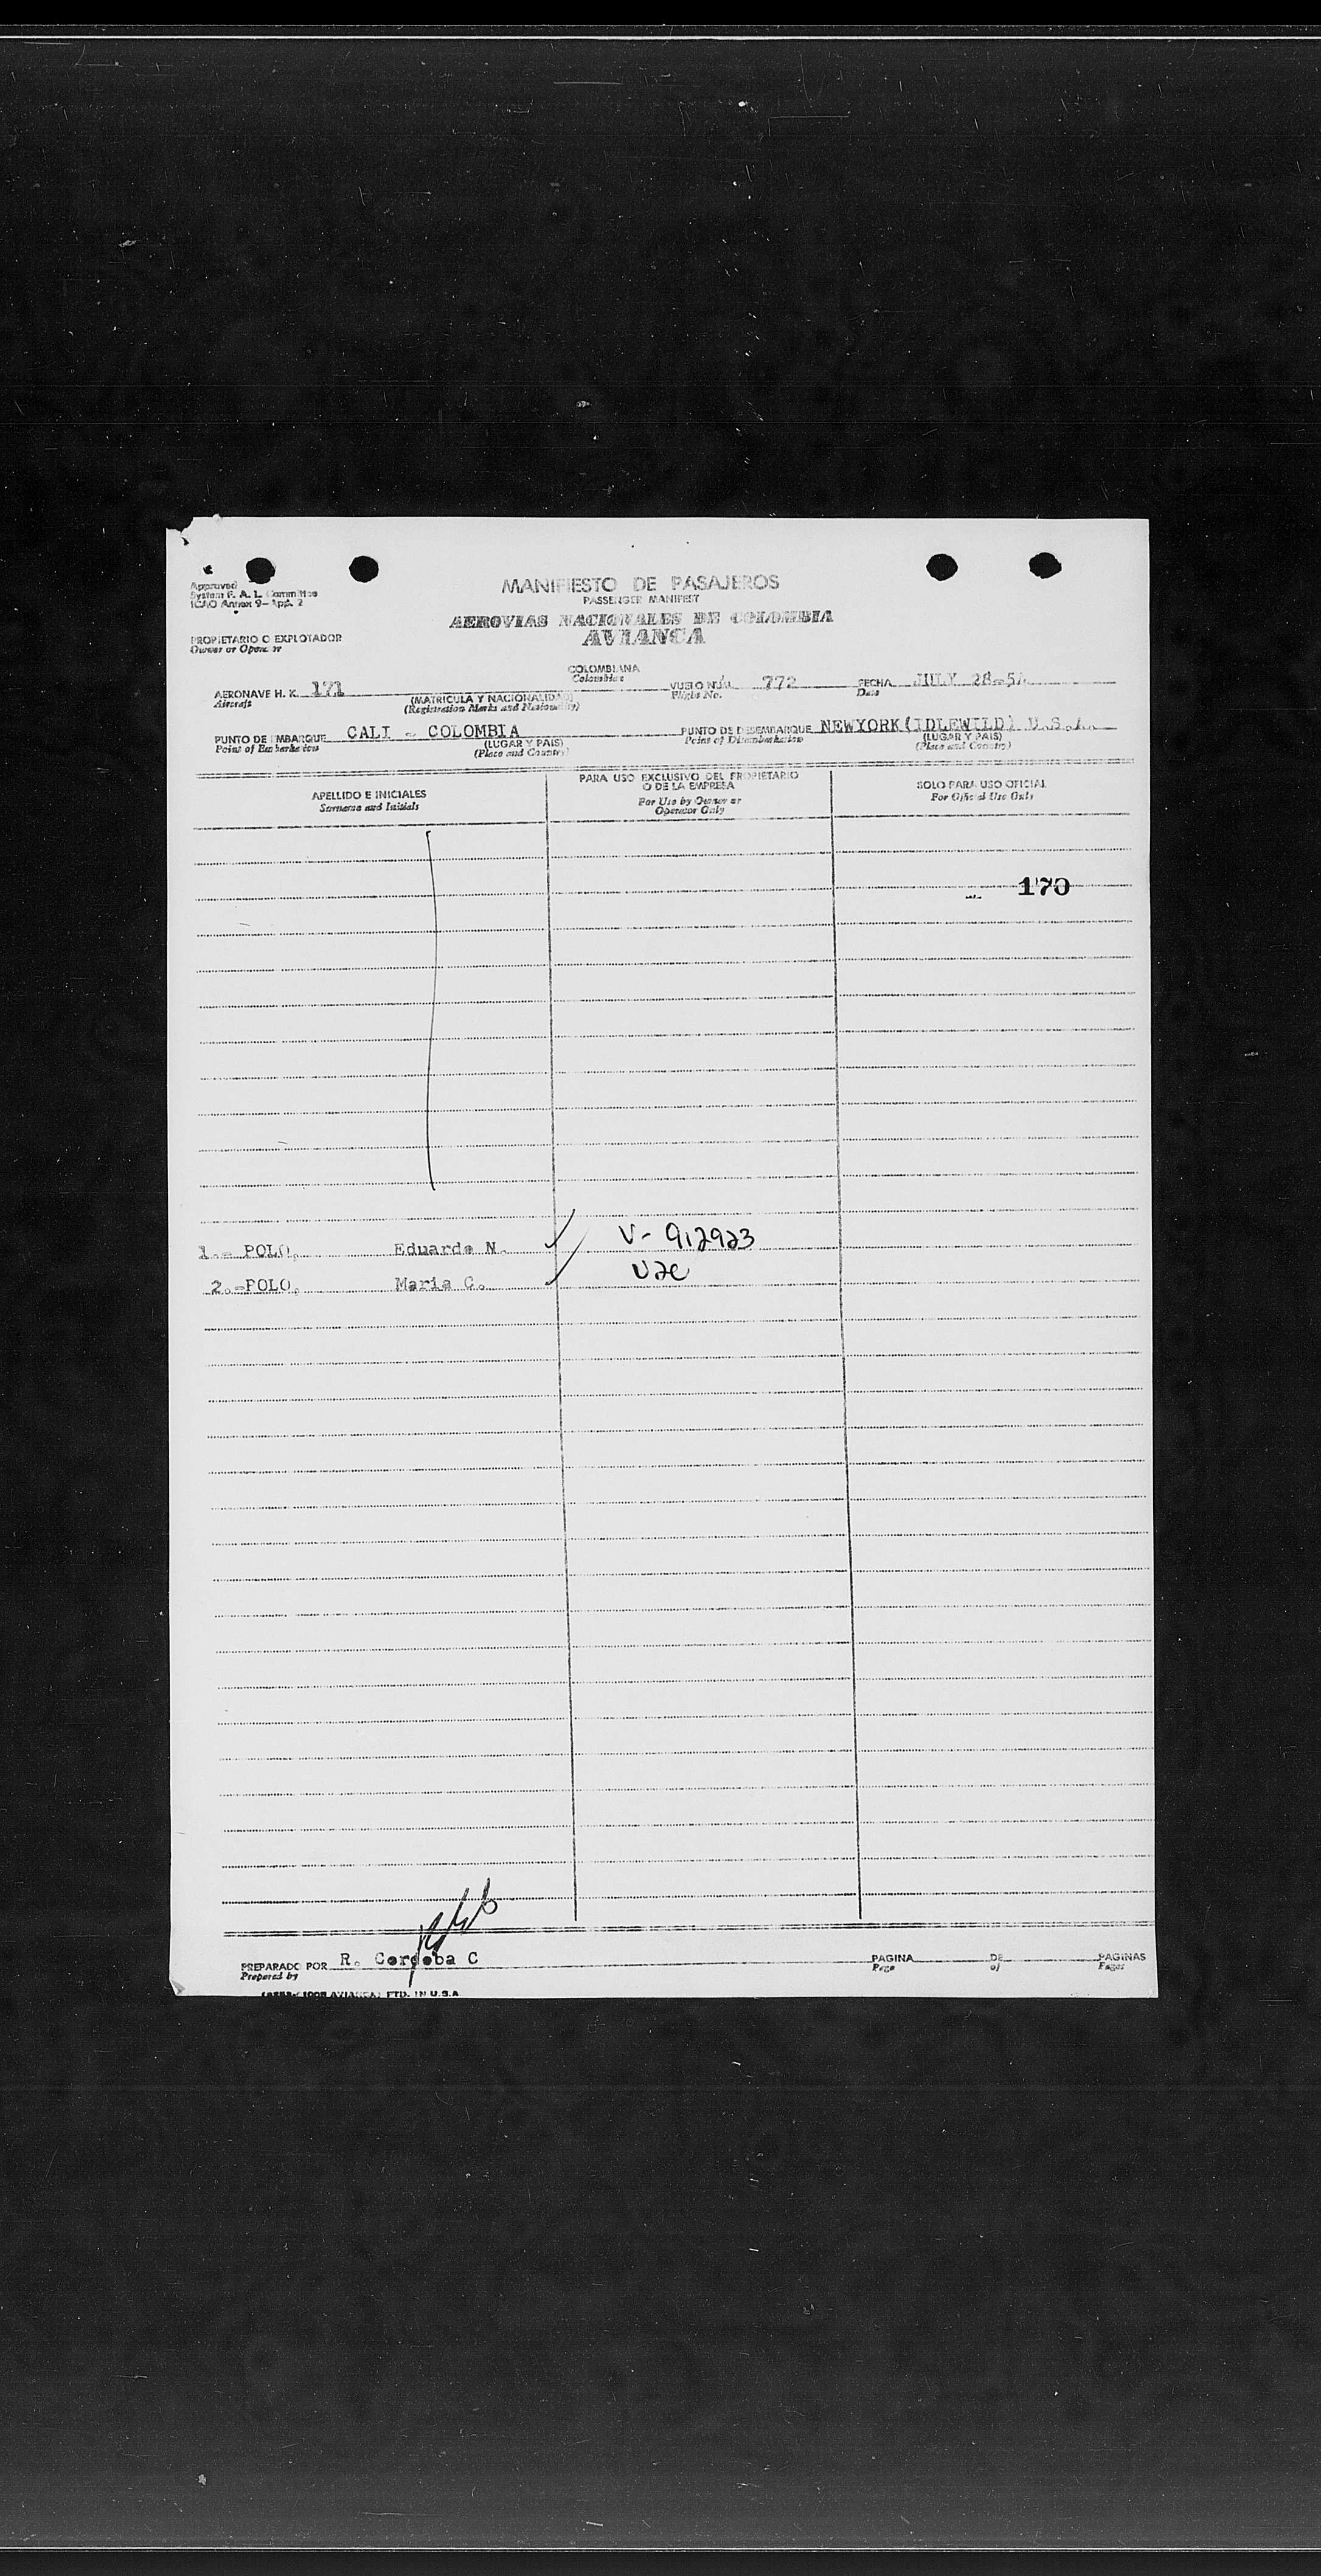 Approved
System F. A. L. Committee
ICAO Annex 9-App. 2
MANIFIESTO DE PASAJEROS
PASSENGER MANIFEST
AEROVIAS NACIONALES DE COLOMBIA
AVIANCA
PROPIETARIO O EXPLOTADOR
Owner or Operator
COLOMBIANA
Colombian
AERONAVE H. K. 171 VUELO NÚM. 772 FECHA JULY 28-54
Aircraft (MATRICULA Y NACIONALIDAD) Flight No. Date
(Registration Marks and Nationality)
PUNTO DE EMBARQUE CALI - COLOMBIA PUNTO DE DESEMBARQUE NEWYORK(IDLEWILD) U.S.A.
Point of Embarkation (LUGAR Y PAIS) Point of Disembarkation (LUGAR Y PAIS)
(Place and Country) (Place and Country)
APELLIDO E INICIALES PARA USO EXCLUSIVO DEL PROPIETARIO O DE LA EMPRESA SOLO PARA USO OFICIAL
Surname and Initials For Use by Owner or Operator Only For Official Use Only
170
1.- POLO, Eduardo N. V- 912923
2.-POLO, Maria C.
PREPARADO POR R. Cordoba C PAGINA DE PAGINAS
Prepared by Page of Pages
AVIANCA) PTD. IN U.S.A.